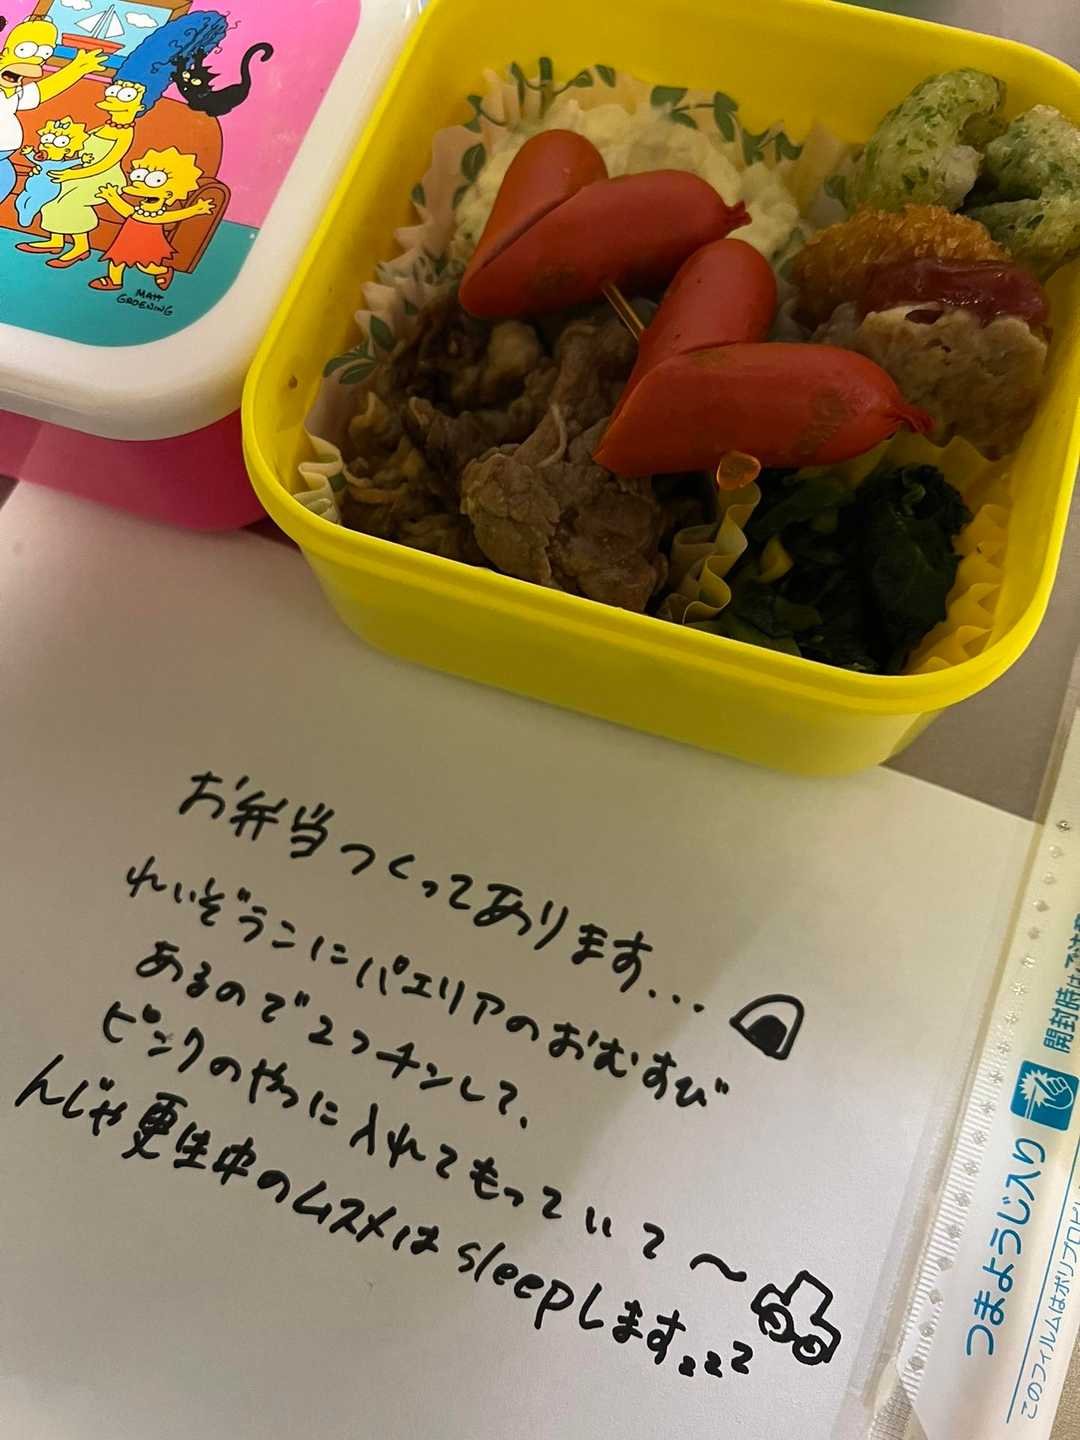 MATT
GROENING
お弁当つくってあります...
れいぞうこにパエリアのおむすび
あるので2コチンして、
ピンクのやつに入れてもっていて～
んじゃ更生中のムスメはsleepします。zzz
つまようじ入り
開封時は
このフィルムはポリプロピレ